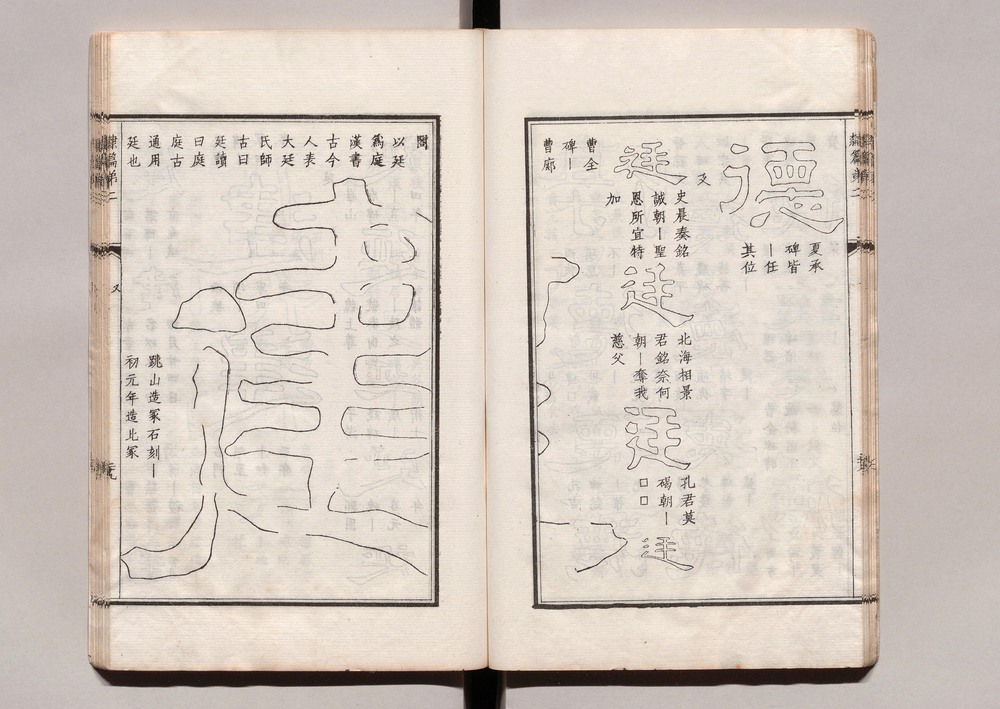 德
夏承
碑皆
｜任
其位
廷
史晨奏銘
誠朝｜聖
恩所宜特
加
廷
北海相景
君銘奈何
朝｜奪我
慈父
廷
孔君墓
碣朝｜
□□
廷
曹全
碑｜
曹廊
閣
以廷
爲庭
漢書
古今
人表
大廷
氏師
古曰
廷讀
曰庭
庭古
通用
廷也
建
跳山造冢石刻｜
初元年造此冢
隸篇第二